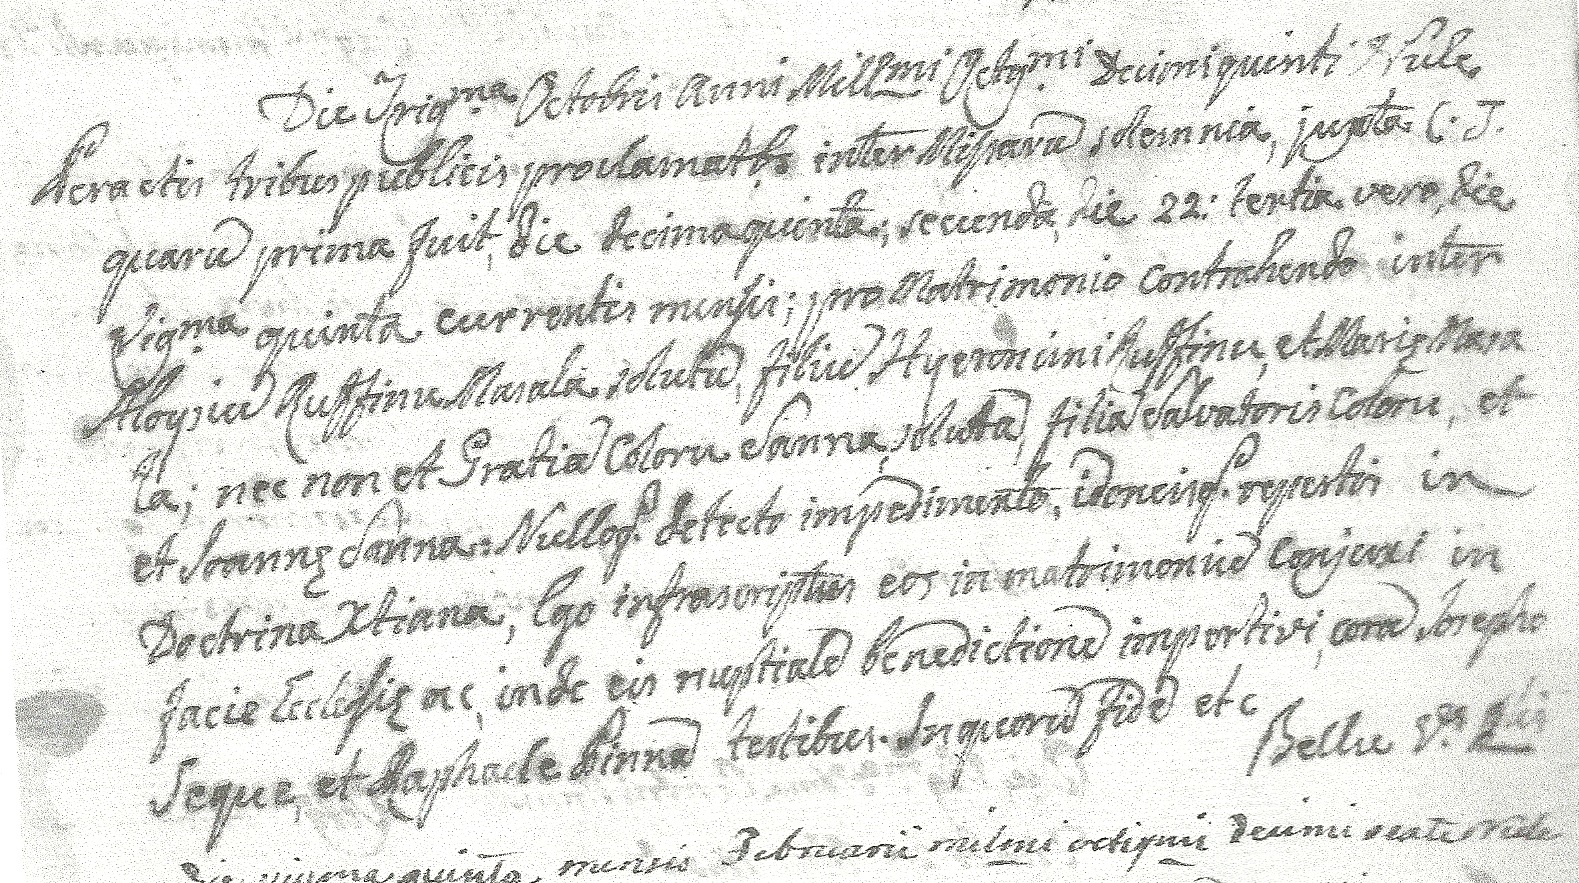 Die Trigma. Octobris Anni Millmi Octgmi. Decimi quinti
Peractis tribus publicis proclamatbs inter Missarū solemnia, juxta C. T.
quarū prima fuit, die decima quinta, secunda, die 22: tertia vero, die
Vigma. quinta currentis mensis; pro Matrimonio contrahendo inter
Aloysiū Ruffinu Masala solutū, filiū Hyeronimi Ruffinu, et Marię Masa
la; nec non et Gratiā Coloru Sanna, solutā, filiā Salvatoris Coloru, et
et Joannę Sanna. Nulloq. detecto impedimento, idoneisq. repertis in
Doctrina Xtiana, Ego infrascriptus eos in matrimoniū conjuxi in
facie Ecclesię ac inde eis nuptialē benedictionē impertivi, corā Josepho
Seque, et Raphaele Pinna testibus. In quorū fidē etc
Bellu
die quinta mensis Februarii milmi octigmi decimi